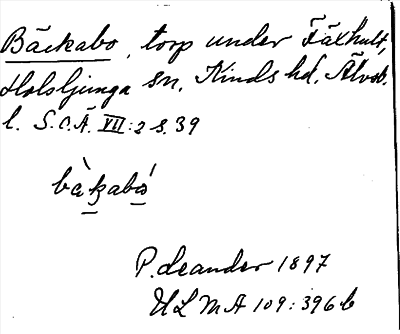 Bäckabo, torp under Fäxhult,
Holsljunga sn, Kinds hd, Älvsb.
l. S.O.Ä. VII:2 s. 39
bàkabó
P. Leander 1897
ULMA 109:396 b